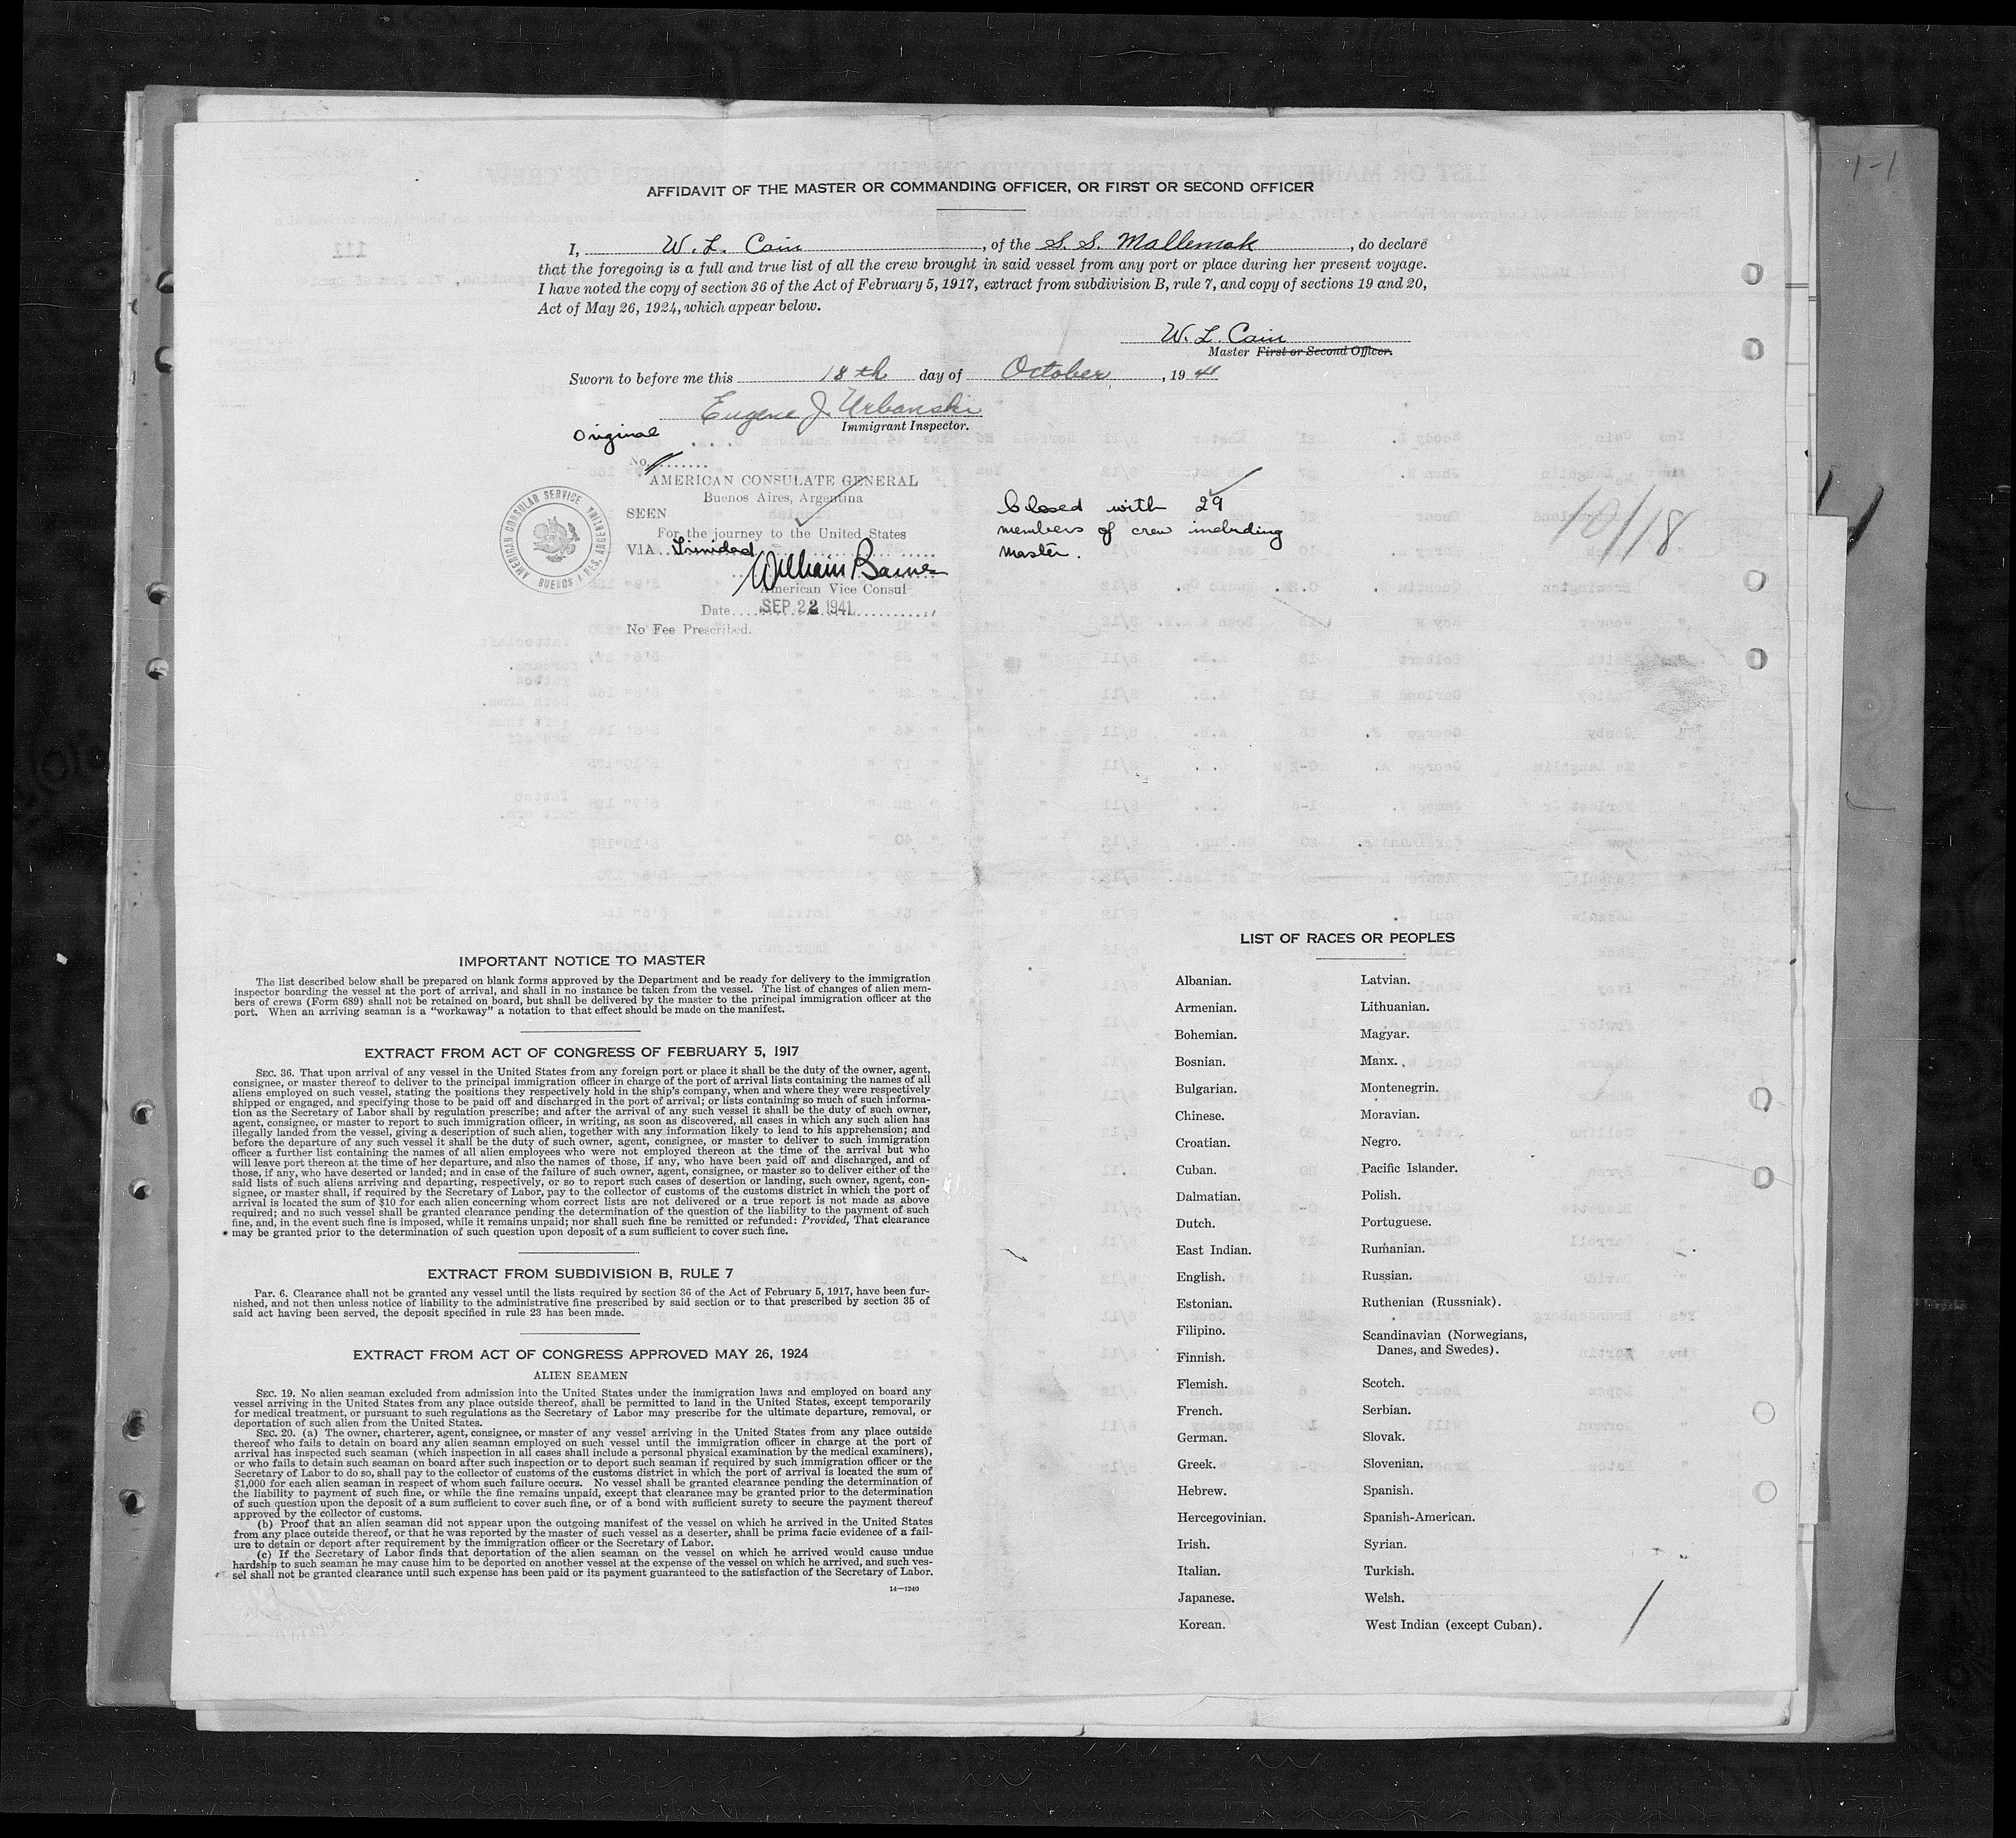 AFFIDAVIT OF THE MASTER OR COMMANDING OFFICER, OR FIRST OR SECOND OFFICER
I, W. L. Cain, of the S. S. Mallemak, do declare
that the foregoing is a full and true list of all the crew brought in said vessel from any port or place during her present voyage.
I have noted the copy of section 36 of the Act of February 5, 1917, extract from subdivision B, rule 7, and copy of sections 19 and 20,
Act of May 26, 1924, which appear below.
W. L. Cain
Master First or Second Officer.
Sworn to before me this 18th day of October, 1941
Eugene J. Urbanski
Immigrant Inspector.
Original
No.
AMERICAN CONSULATE GENERAL
Buenos Aires, Argentina
SEEN
For the journey to the United States
VIA Trinidad
William Barnes
American Vice Consul
Date SEP 22 1941
No Fee Prescribed.
AMERICAN CONSULAR SERVICE
BUENOS AIRES, ARGENTINA
Closed with 29
members of crew including
master.
10/18
1-1
IMPORTANT NOTICE TO MASTER
The list described below shall be prepared on blank forms approved by the Department and be ready for delivery to the immigration
inspector boarding the vessel at the port of arrival, and shall in no instance be taken from the vessel. The list of changes of alien mem-
bers of crews (Form 689) shall not be retained on board, but shall be delivered by the master to the principal immigration officer at the
port. When an arriving seaman is a "workaway" a notation to that effect should be made on the manifest.
EXTRACT FROM ACT OF CONGRESS OF FEBRUARY 5, 1917
SEC. 36. That upon arrival of any vessel in the United States from any foreign port or place it shall be the duty of the owner, agent,
consignee, or master thereof to deliver to the principal immigration officer in charge of the port of arrival lists containing the names of all
aliens employed on such vessel, stating the positions they respectively hold in the ship's company, when and where they were respectively
shipped or engaged, and specifying those to be paid off and discharged in the port of arrival; or lists containing so much of such informa-
tion as the Secretary of Labor shall by regulation prescribe; and after the arrival of any such vessel it shall be the duty of such owner,
agent, consignee, or master to report to such immigration officer, in writing, as soon as discovered, all cases in which any such alien has
illegally landed from the vessel, giving a description of such alien, together with any information likely to lead to his apprehension; and
before the departure of any such vessel it shall be the duty of such owner, agent, consignee, or master to deliver to such immigration
officer a further list containing the names of all alien employees who were not employed thereon at the time of the arrival but who
will leave port thereon at the time of her departure, and also the names of those, if any, who have been paid off and discharged, and of
those, if any, who have deserted or landed; and in case of the failure of such owner, agent, consignee, or master so to deliver either of the
said lists of such aliens arriving and departing, respectively, or so to report such cases of desertion or landing, such owner, agent, con-
signee, or master shall, if required by the Secretary of Labor, pay to the collector of customs of the customs district in which the port of
arrival is located the sum of $10 for each alien concerning whom correct lists are not delivered or a true report is not made as above
required; and no such vessel shall be granted clearance pending the determination of the question of the liability to the payment of such
fine, and, in the event such fine is imposed, while it remains unpaid; nor shall such fine be remitted or refunded: Provided, That clearance
may be granted prior to the determination of such question upon deposit of a sum sufficient to cover such fine.
EXTRACT FROM SUBDIVISION B, RULE 7
Par. 6. Clearance shall not be granted any vessel until the lists required by section 36 of the Act of February 5, 1917, have been fur-
nished, and not then unless notice of liability to the administrative fine prescribed by said section or to that prescribed by section 35 of
said act having been served, the deposit specified in rule 23 has been made.
EXTRACT FROM ACT OF CONGRESS APPROVED MAY 26, 1924
ALIEN SEAMEN
SEC. 19. No alien seaman excluded from admission into the United States under the immigration laws and employed on board any
vessel arriving in the United States from any place outside thereof, shall be permitted to land in the United States, except temporarily
for medical treatment, or pursuant to such regulations as the Secretary of Labor may prescribe for the ultimate departure, removal, or
deportation of such alien from the United States.
SEC. 20. (a) The owner, charterer, agent, consignee, or master of any vessel arriving in the United States from any place outside
thereof who fails to detain on board any alien seaman employed on such vessel until the immigration officer in charge at the port of
arrival has inspected such seaman (which inspection in all cases shall include a personal physical examination by the medical examiners),
or who fails to detain such seaman on board after such inspection or to deport such seaman if required by such immigration officer or the
Secretary of Labor to do so, shall pay to the collector of customs of the customs district in which the port of arrival is located the sum of
$1,000 for each alien seaman in respect of whom such failure occurs. No vessel shall be granted clearance pending the determination of
the liability to payment of such fine, or while the fine remains unpaid, except that clearance may be granted prior to the determination
of such question upon the deposit of a sum sufficient to cover such fine, or of a bond with sufficient surety to secure the payment thereof
approved by the collector of customs.
(b) Proof that an alien seaman did not appear upon the outgoing manifest of the vessel on which he arrived in the United States
from any place outside thereof, or that he was reported by the master of such vessel as a deserter, shall be prima facie evidence of a fail-
ure to detain or deport after requirement by the immigration officer or the Secretary of Labor.
(c) If the Secretary of Labor finds that deportation of the alien seaman on the vessel on which he arrived would cause undue
hardship to such seaman he may cause him to be deported on another vessel at the expense of the vessel on which he arrived, and such ves-
sel shall not be granted clearance until such expense has been paid or its payment guaranteed to the satisfaction of the Secretary of Labor.
14—1240
LIST OF RACES OR PEOPLES
Albanian.
Armenian.
Bohemian.
Bosnian.
Bulgarian.
Chinese.
Croatian.
Cuban.
Dalmatian.
Dutch.
East Indian.
English.
Estonian.
Filipino.
Finnish.
Flemish.
French.
German.
Greek.
Hebrew.
Hercegovinian.
Irish.
Italian.
Japanese.
Korean.
Latvian.
Lithuanian.
Magyar.
Manx.
Montenegrin.
Moravian.
Negro.
Pacific Islander.
Polish.
Portuguese.
Rumanian.
Russian.
Ruthenian (Russniak).
Scandinavian (Norwegians,
Danes, and Swedes).
Scotch.
Serbian.
Slovak.
Slovenian.
Spanish.
Spanish-American.
Syrian.
Turkish.
Welsh.
West Indian (except Cuban).